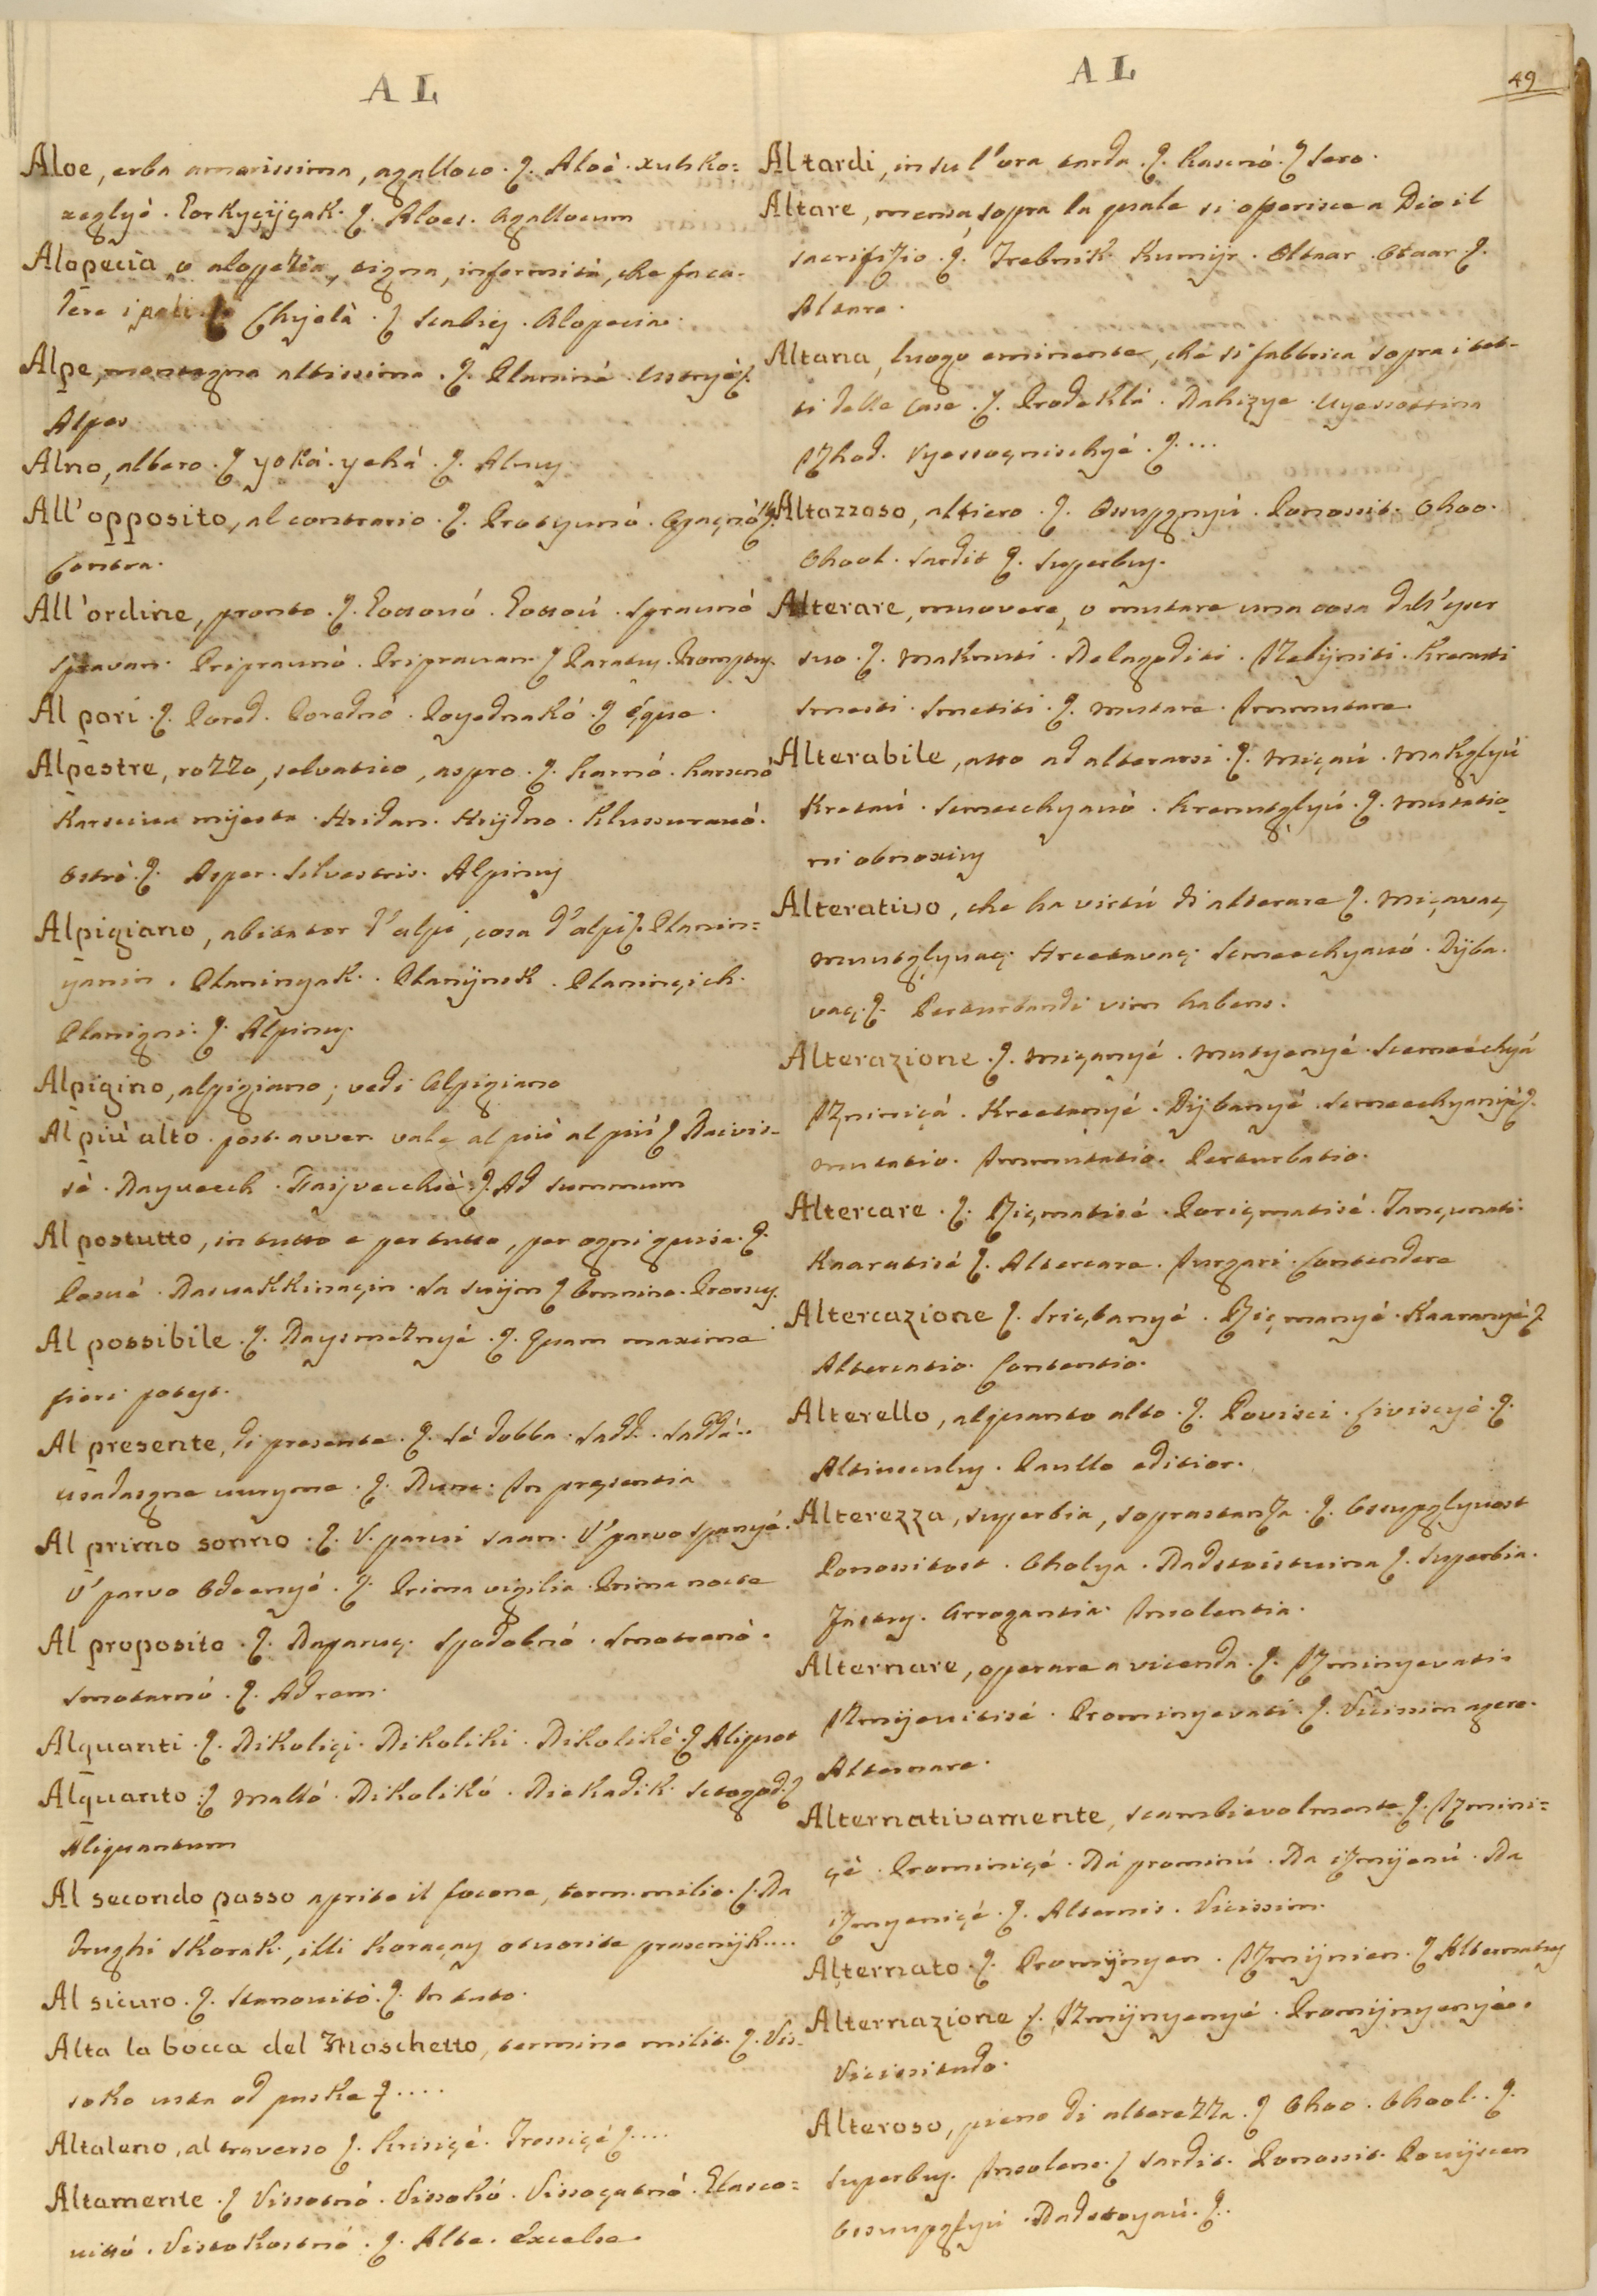 AL
Aloe, erba amarissima, agalloco. Aloè. xutsko=
Gorkyçijçak. Aloes. Agallocum
Alopecia, o alopezia, tigna, infermità, che fa ca-
dere i peli. Chyelà. Scabies. Alopeciae.
Alpe, montagna altissima. Planinè.
Alpes
Alno, albero. yokà. yehá. Alnus
All'opposito, al contrario. Protyunò.
Contra.
All'ordine, pronto. Gottouó. Gottoú. Spraunò
spravan. Pripraunò. Pripravan. Paratus. Promptus.
Al pari. Pored. Porednó. Poyednakó. Eque.
Alpestre, rozzo, selvatico, aspro. Karnó. Karsenó
Karscina myesta. Hridan. Hrijdno. Klussurauó.
Ostrò. Asper. Silvestris. Alpinus
Alpigiano, abitator d'alpi, cosa d'alpi. Planin=
yanin. Planinyak. Planijnsk. Planinçich.
Planigni. Alpinus.
Alpigino, alpigiano; vedi Alpigiano
Al più alto. post. avver. vale al più al più. Naivis-
sè. Nayveech. Naijvecchiè. Ad summum
Al postutto, in tutto e per tutto, per ogni guisa.
Posué. Nasuakkinaçin. Sa suijm. Omnino. Prorsus.
Al possibile. Naysmoxnyé. Quam maxime
fieri potest.
Al presente, di presente. Sè dobba. Sadd. Saddà.
usadasgne uuryme. Nunc. In presentia
Al primo sonno. V. parui saan. V'parvo spanyé.
V'parvo Odeenyé. Prima vigilia. Prima nocte
Al proposito. Naparuç. Spodobnó. Smotrenò.
Smotarnó. Ad rem.
Alquanti. Nikoliçi. Nikoliki. Nikolikè. Aliquot
Alquanto. Malló. Nikolikó. Niekadik. Sctogod.
Aliquantum
Al secondo passo aprite il focone, term. milit. Na
drughi skorak, illi koraçay otuorite prascnijk....
Al sicuro. Stanouitò. In tuto.
Alta la bocca del Moschetto, termine milit. Vis-
soko usta od puske....
Altaleno, al traverso. Kriuiçé. Trossiçé....
Altamente. Vissotnó. Vissokó. Vissoçatnó. Stasco=
uittó. Vissokostnó. Alte. Excelse.
AL
49
Al tardi, in sul'ora tarda. Kascnó. Sero.
Altare, mensa, sopra la quale si offerisce a Dio il
sacrifizio. Trebnik. Kumijr. Oltaar. Otaar.
Altare.
Altana, luogo eminente, che si fabbrica sopra i tet-
ti delle case. Prodeklá. Nahixye. Uyessottina
Izhod. Vyessoçnischyé....
Altazzoso, altiero. Ossupgnyú. Ponossit. Ohoo.
Ohool. Sardit. Superbus.
Alterare, muovere, o mutare una cosa dall'esser
suo. Maknuti. Nelagoditi. Izbijniti. Krenuti
Smesti. Smetiti. Mutare. Immutare.
Alterabile, atto ad alterarsi. Miçaú. Makglyú
Kretaú. Semeechyauó. Krenutglyú. Mutatio=
ni obnoxius
Alterativo, che ha virtú di alterare. Miçavaç
Muutglyvaç. Kreetavaç. Semeechyauó. Dijba.
vaç. Perturbandi vim habens.
Alterazione. Miçanyé. Mutyenyé. Semeéchyá
Izminiçá. Kreetanyé. Dijbanyé. Semeechyanyé.
Mutatio. Immutatio. Perturbatio.
Altercare. Riçmatisé. Poriçmatisé. Tançunati.
Kaaratisé. Altercare. Iurgari. Contendere
Altercazione. Sriçbanyé. Riçmanyé. Kaaranyé
Altercatio. Contentio.
Alterello, alquanto alto. Povisci. Siviscyè.
Altiusculus. Paullo editior.
Alterezza, superbia, soprastanza. Ossupglyuost
Ponossitost. Oholya. Nadstoistuina. Superbia.
Fastus. Arrogantia. Insolentia.
Alternare, operare a vicenda. Izminyevati.
Izmijenitisé. Prominyevati. Vicissim agere.
Alternare.
Alternativamente, scambievolmente. Izmini=
çè. Prominiçé. Ná prominú. Na izmijenú. Na
izmyeniçé. Alternis. Vicissim.
Alternato. Promijnyen. Izmijnien. Alternatus
Alternazione. Izmijnyenyé. Promijnyenyé.
Vicissitudo.
Alteroso, pieno di alterezza. Ohoo. Ohool.
Superbus. Insolens. Sardit. Ponossit. Pouijscen
Ossuupglyú. Nadstoyaú.